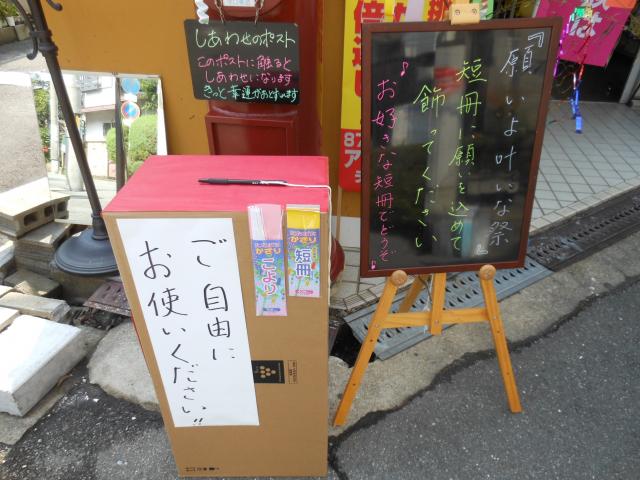 しあわせのポスト
このポストに触ると
しあわせになります
きっと幸運がおとずれます
『願いよ叶いな祭』
短冊に願いを込めて
飾ってください
お好きな短冊でどうぞ♪
ご自由に
お使いください!!
かざり
こより
かざり
短冊